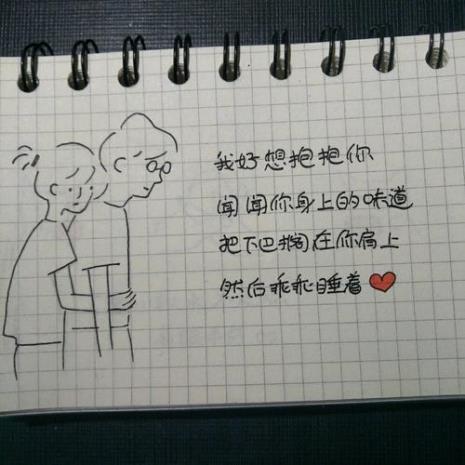 我好想抱抱你
闻闻你身上的味道
把下巴搁在你肩上
然后乖乖睡着